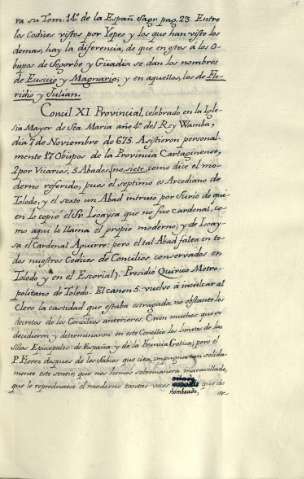 ra su Tom. 14º de la Españ. Sagr. pag. 23. Entre
los Codices vistos por Yepes y los que han visto los
demas, hay la diferencia, de que en estos a los O-
bispos de Segorbe y Guadix se dan los nombres
de Eusicio y Magnario; y en aquellos, los de Flo-
ridio y Julian.
Concil XI Provincial, celebrado en la Igle-
sia Mayor de Sta Maria año 4º del Rey Wamba,
dia 7 de Noviembre de 675. Asistieron personal-
mente 17 Obispos de la Provincia Cartaginense,
2 por Vicarios, 5 Abades (no siete, como dice el mo-
derno referido, pues el septimo es Arcediano de
Toledo, y el sexto un Abad intruso por Surio de qui-
en lo copio el Sr Loaysa que no fue Cardenal, co-
mo aqui le llama el propio moderno; y de Loay-
sa el Cardenal Aguirre: pero el tal Abad falta en to-
dos nuestros Codices de Concilios conservados en
Toledo y en el Escorial). Presidio Quirico Metro-
politano de Toledo. El canon 5. vuelve a inculcar al
Clero la castidad que estaba estragada, no obstante los
decretos de los Concilios anteriores. Creen muchos que se
dividieron y determinaron en este Concilio los limites de las
Sillas Episcopales de España y de la Provincia Gotica; pero el
P. Florez despues de los sabios que cita, impugna tan solida-
mente este sentir, que nos hemos sobremanera maravillado,
que lo reproduzca el moderno tantas veces
nombrado, que de